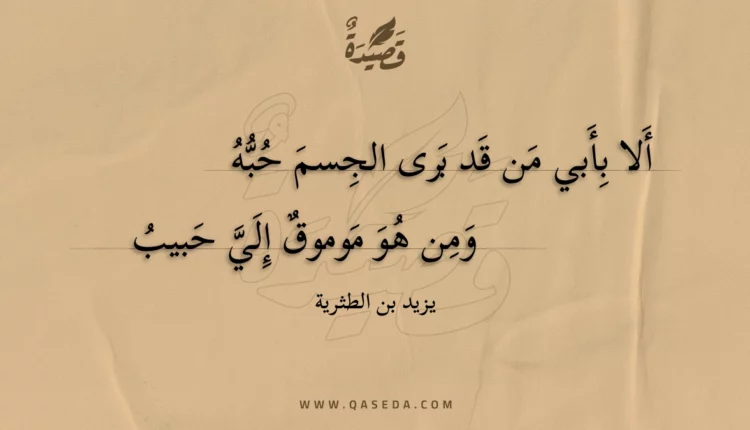 قَصِيْدَةٌ
أَلا بِأَبي مَن قَد بَرى الجِسمَ حُبُّهُ
وَمِن هُوَ مَوموقٌ إِلَيَّ حَبيبُ
يزيد بن الطثرية
WWW.QASEDA.COM